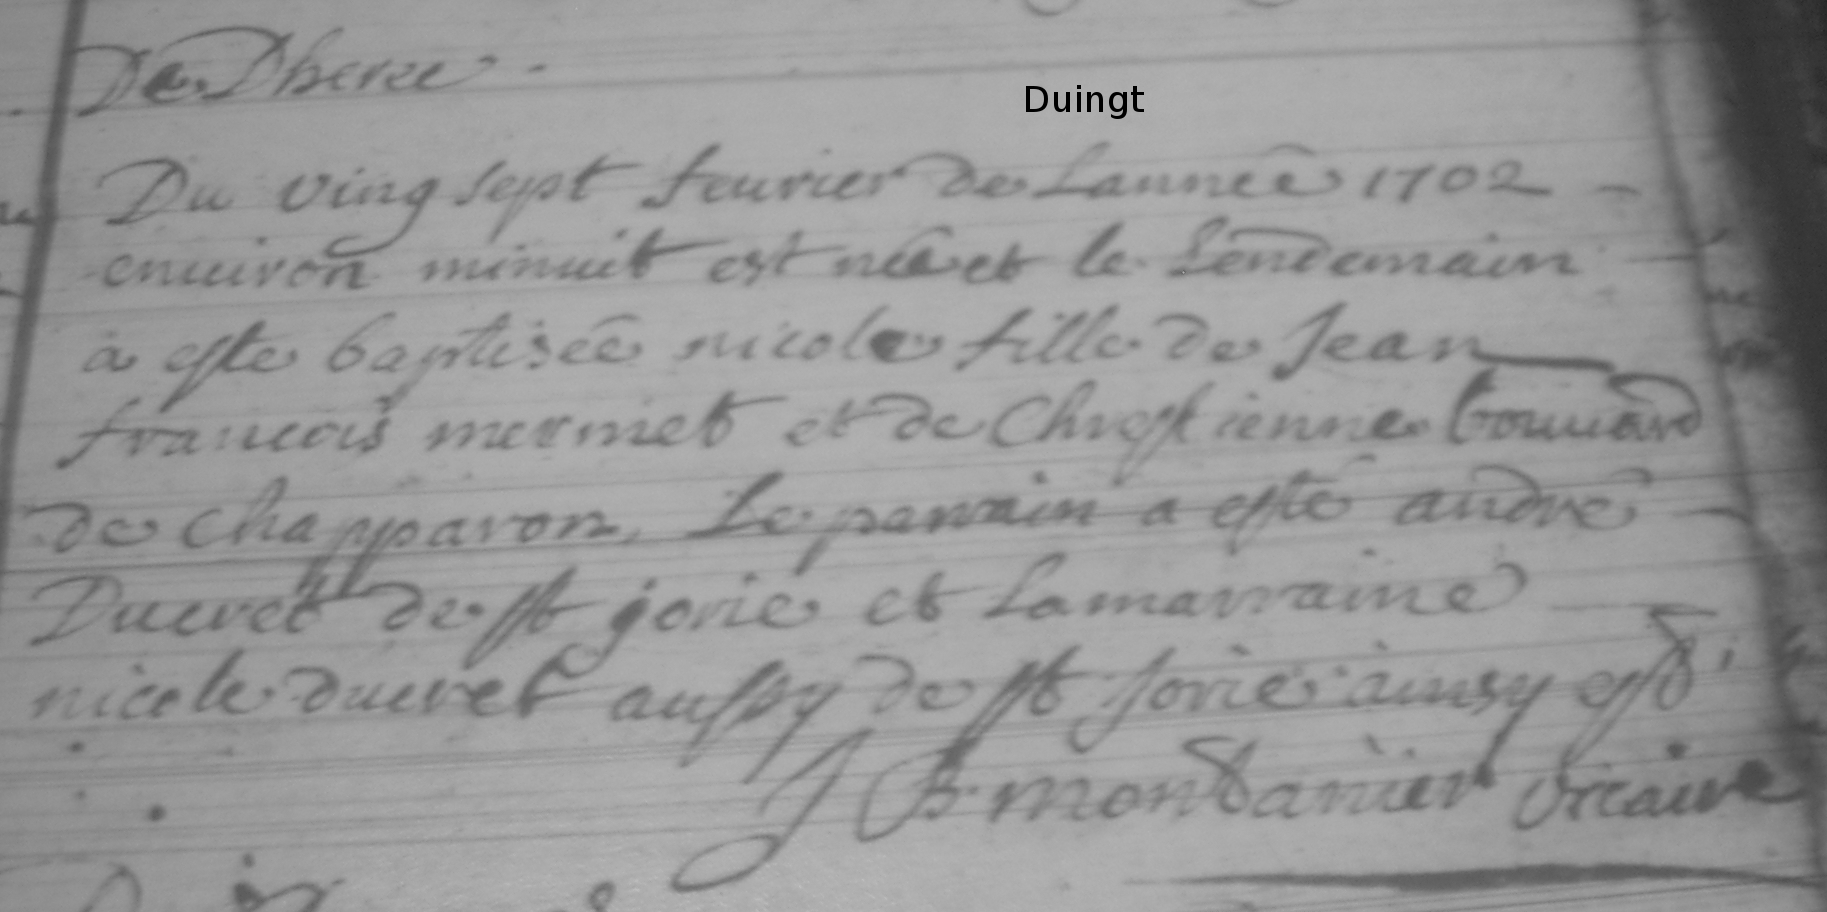 De Dheree
Duingt
Du ving sept feuvrier de Lannee 1702
enuiron minuit est née et le Lendemain
a este baptisée nicole fille de Jean
francois mermet et de Chrestienne bouuard
de Chapparon, Le parrain a esté andré
Ducret de st jorie et La marraine
nicole ducret aussy de st Jorie ainsy est
J B mondanier vicaire